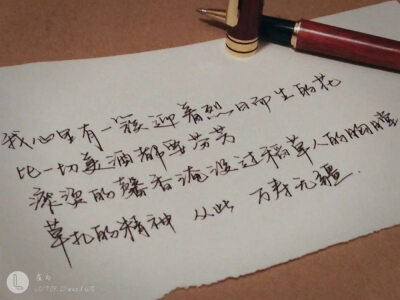 我心里有一簇迎着烈日而生的花
比一切美酒都要芬芳
滚烫的馨香淹没过稻草人的胸膛
草扎的精神 从此 万寿无疆.